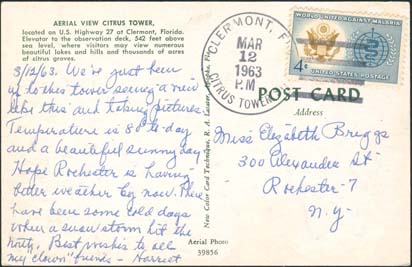 AERIAL VIEW CITRUS TOWER,
located on U.S. Highway 27 at Clermont, Florida.
Elevator to the observation deck, 542 feet above
sea level, where visitors may view numerous
beautiful lakes and hills and thousands of
acres of citrus groves.
3/12/63. We've just been
up to this tower seeing a view
like this and taking pictures.
Temperature is 80° to-day
and a beautiful sunny day.
Hope Rochester is having
better weather by now. There
have been some cold days
when a snow storm hit the
north. Best wishes to all
my "clown" friends - Harriet
New Color Card Technique, R. A.
Aerial Photo
39856
CLERMONT,
MAR
12
1963
PM
CITRUS TOWER
WORLD UNITED AGAINST MALARIA
4¢
UNITED STATES POSTAGE
POST CARD
Address
Miss Elizabeth Briggs
300 Alexander St.
Rochester-7
N.Y.